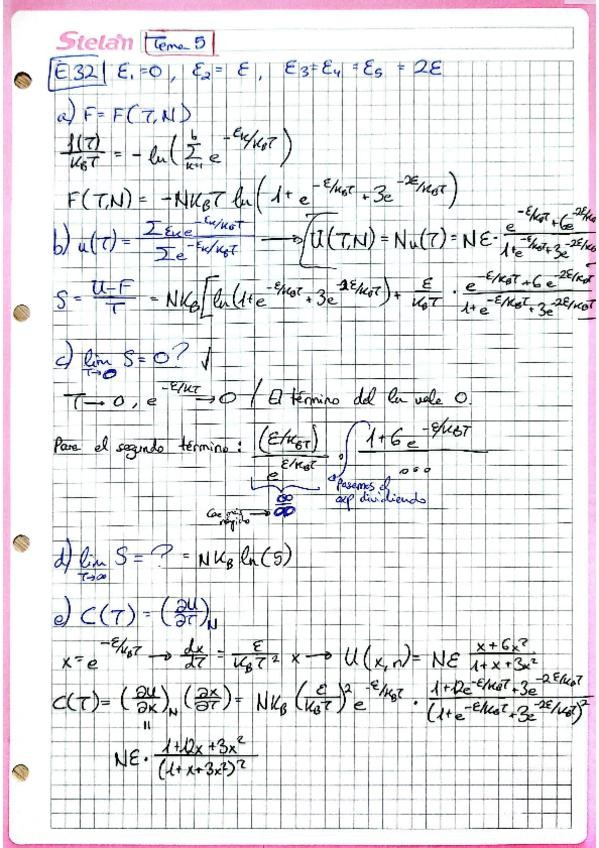 Stelan Tema 5
E.32 ε₁=0, ε₂= ε, ε₃=ε₄=ε₅ = 2ε
a) F=F(T,N)
f(T)/K_BT = -ln(∑ e^{-εk/K_BT})
F(T,N) = -NK_BT ln(1+e^{-ε/K_BT}+3e^{-2ε/K_BT})
b) u(T) = ∑εk e^{-εk/K_BT} / ∑e^{-εk/K_BT} → U(T,N)=Nu(T)=Nε· (e^{-ε/K_BT}+6e^{-2ε/K_BT}) / (1+e^{-ε/K_BT}+3e^{-2ε/K_BT})
S = (U-F)/T = NK_B[ln(1+e^{-ε/K_BT}+3e^{-2ε/K_BT})+ ε/K_BT · (e^{-ε/K_BT}+6e^{-2ε/K_BT}) / (1+e^{-ε/K_BT}+3e^{-2ε/K_BT})
c) lim T→0 S=0? √
T→0, e^{-ε/KT}→0 / El término del ln vale 0.
Para el segundo término: (ε/K_BT) / e^{ε/K_BT} · (1+6e^{-ε/K_BT}) / ...
Pasamos el
exp dividiendo
Cae más
rápido → ∞/∞
d) lim T→∞ S=? = NK_B ln(5)
e) C(T) = (∂U/∂T)_N
x=e^{-ε/K_BT} → dx/dT = ε/K_BT² x → U(x,n)= Nε (x+6x²)/(1+x+3x²)
C(T)= (∂U/∂x)_N (∂x/∂T) = NK_B (ε/K_BT)² e^{-ε/K_BT} · (1+12e^{-ε/K_BT}+3e^{-2ε/K_BT}) / (1+e^{-ε/K_BT}+3e^{-2ε/K_BT})²
=
Nε· (1+12x+3x²)/(1+x+3x²)²